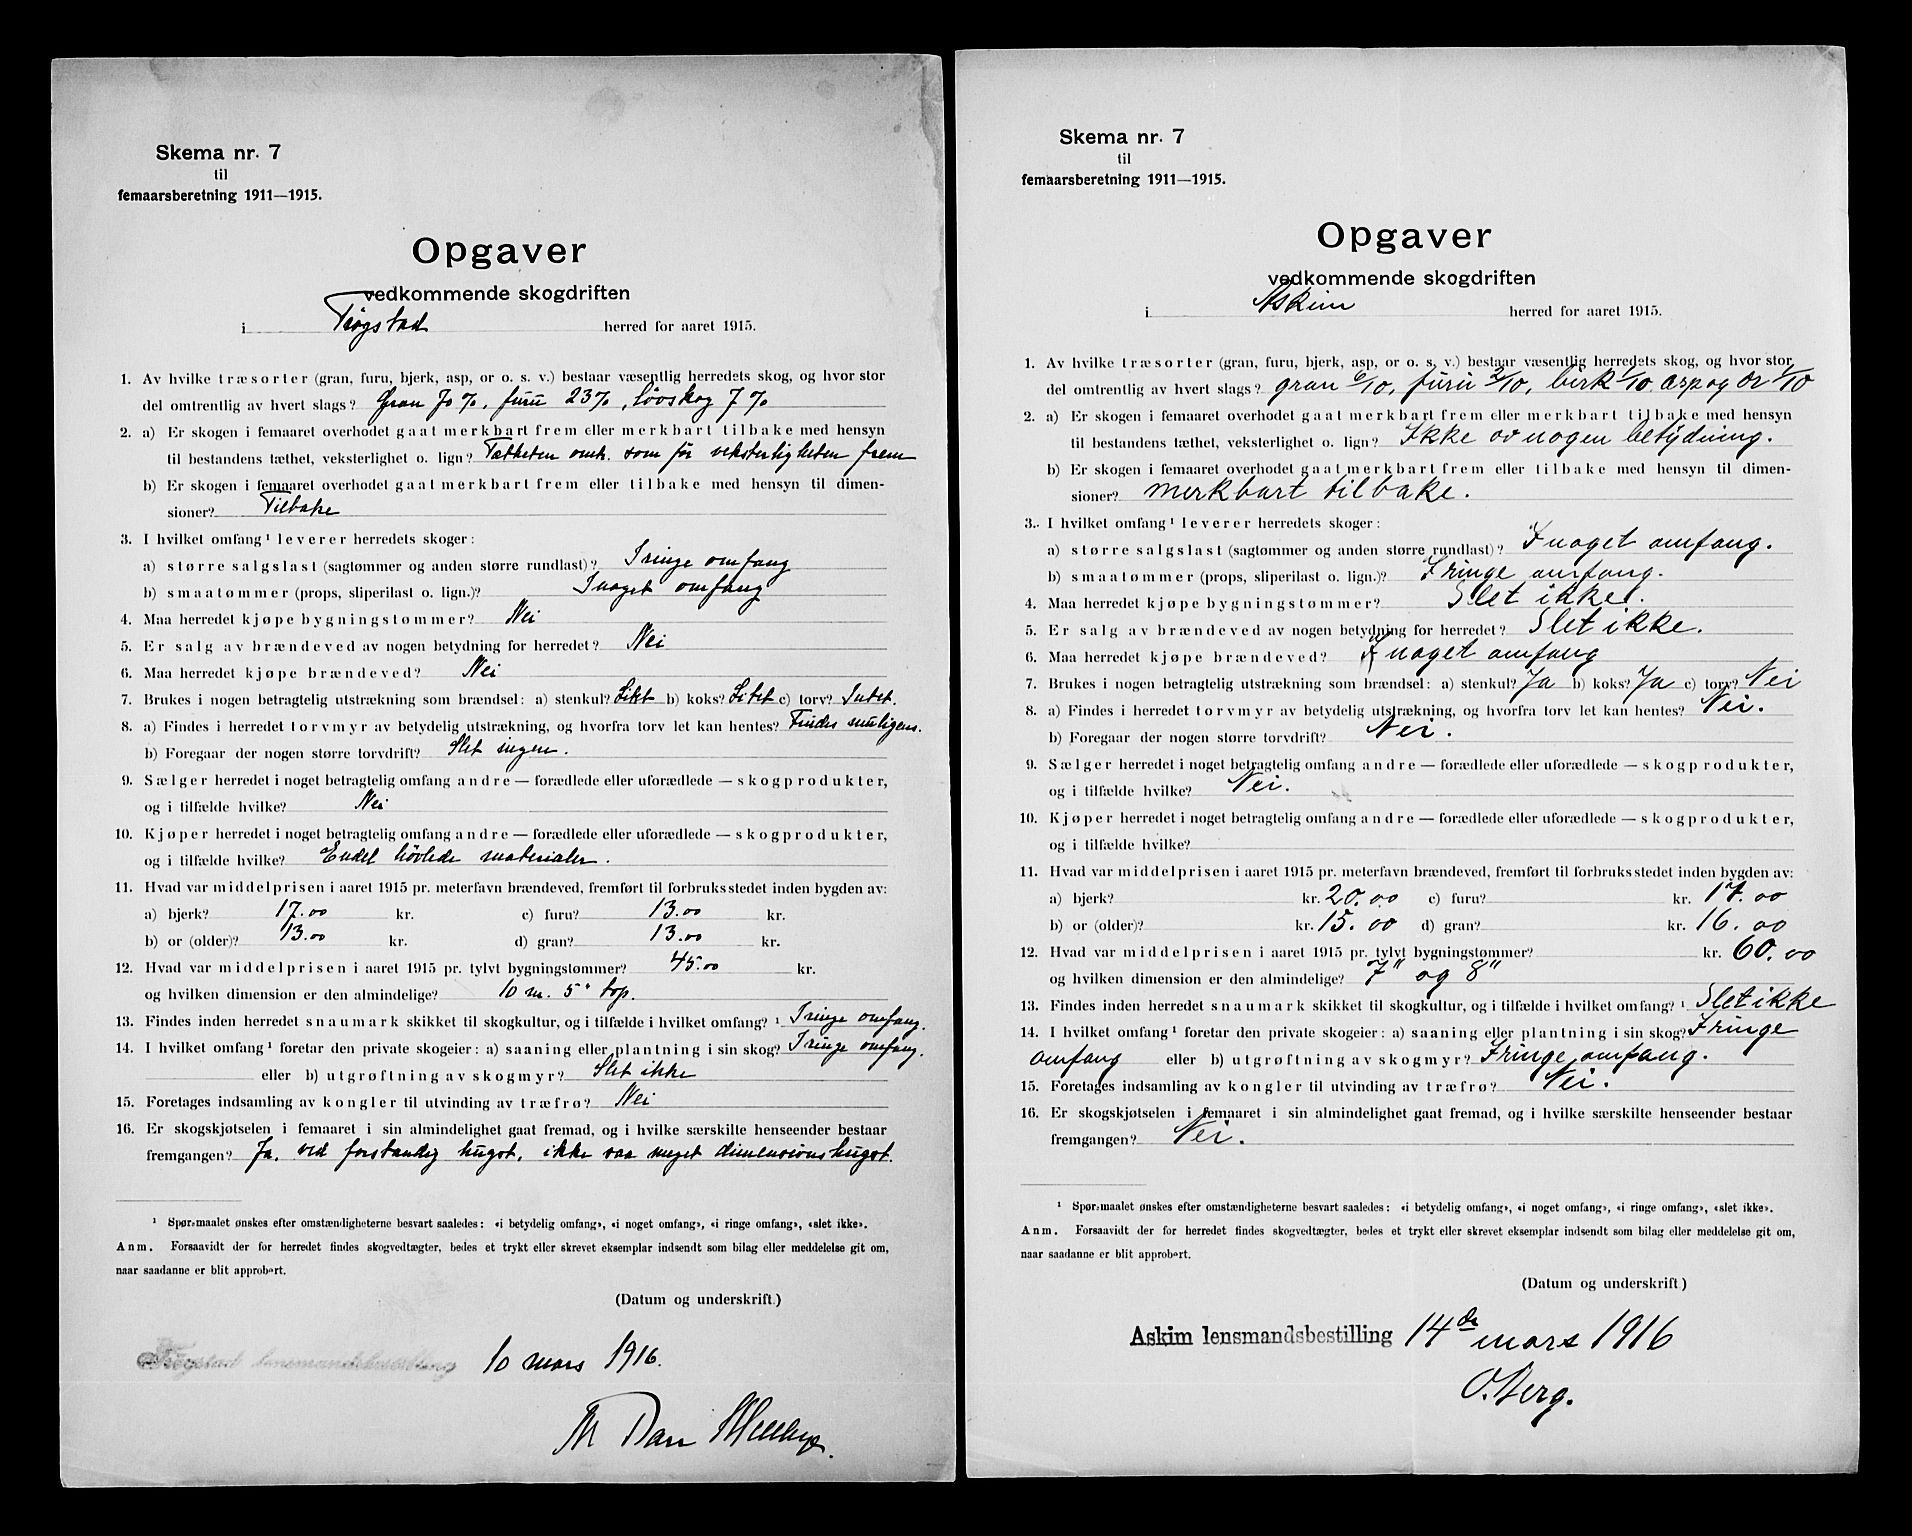 Skema nr. 7
til
femaarsberetning 1911—1915.
Opgaver
vedkommende skogdriften
i Trøgstad herred for aaret 1915.
1. Av hvilke træsorter (gran, furu, bjerk, asp, or o. s. v.) bestaar væsentlig herredets skog, og hvor stor
del omtrentlig av hvert slags? Gran 70 %, furu 23 %, løvskog 7 %
2. a) Er skogen i femaaret overhodet gaat merkbart frem eller merkbart tilbake med hensyn
til bestandens tæthet, veksterlighet o. lign? Tætheten omtr. som før veksterligheten frem
b) Er skogen i femaaret overhodet gaat merkbart frem eller tilbake med hensyn til dimen-
sioner? Tilbake
3. I hvilket omfang¹ leverer herredets skoger:
a) større salgslast (sagtømmer og anden større rundlast)? I ringe omfang
b) smaatømmer (props, sliperilast o. lign.)? I noget omfang
4. Maa herredet kjøpe bygningstømmer? Nei
5. Er salg av brændeved av nogen betydning for herredet? Nei
6. Maa herredet kjøpe brændeved? Nei
7. Brukes i nogen betragtelig utstrækning som brændsel: a) stenkul? Litt b) koks? Litet c) torv? Intet.
8. a) Findes i herredet torvmyr av betydelig utstrækning, og hvorfra torv let kan hentes? Findes muligens.
b) Foregaar der nogen større torvdrift? Slet ingen.
9. Sælger herredet i noget betragtelig omfang andre — forædlede eller uforædlede — skogprodukter,
og i tilfælde hvilke? Nei
10. Kjøper herredet i noget betragtelig omfang andre — forædlede eller uforædlede — skogprodukter,
og i tilfælde hvilke? Endel høvlede materialer.
11. Hvad var middelprisen i aaret 1915 pr. meterfavn brændeved, fremført til forbruksstedet inden bygden av:
a) bjerk? 17.00 kr. c) furu? 13.00 kr.
b) or (older)? 13.00 kr. d) gran? 13.00 kr.
12. Hvad var middelprisen i aaret 1915 pr. tylvt bygningstømmer? 45.00 kr.
og hvilken dimension er den almindelige? 10 m. 5" top.
13. Findes inden herredet snaumark skikket til skogkultur, og i tilfælde i hvilket omfang? ¹ I ringe omfang.
14. I hvilket omfang¹ foretar den private skogeier: a) saaning eller plantning i sin skog? I ringe omfang.
eller b) utgrøftning av skogmyr? Slet ikke
15. Foretages indsamling av kongler til utvinding av træfrø? Nei
16. Er skogskjøtselen i femaaret i sin almindelighet gaat fremad, og i hvilke særskilte henseender bestaar
fremgangen? Ja, ved forstandig hugst, ikke saa meget dimensionshugst.
¹ Spørsmaalet ønskes efter omstændigheterne besvart saaledes: «i betydelig omfang», «i noget omfang», «i ringe omfang», «slet ikke».
Anm. Forsaavidt der for herredet findes skogvedtægter, bedes et trykt eller skrevet eksemplar indsendt som bilag eller meddelelse git om,
naar saadanne er blit approbert.
(Datum og underskrift.)
Trøgstad lensmandsbestilling 10 mars 1916.

Skema nr. 7
til
femaarsberetning 1911—1915.
Opgaver
vedkommende skogdriften
i Askim herred for aaret 1915.
1. Av hvilke træsorter (gran, furu, bjerk, asp, or o. s. v.) bestaar væsentlig herredets skog, og hvor stor
del omtrentlig av hvert slags? gran 6/10, furu 2/10, birk 1/10. asp og or 1/10
2. a) Er skogen i femaaret overhodet gaat merkbart frem eller merkbart tilbake med hensyn
til bestandens tæthet, veksterlighet o. lign? Ikke av nogen betydning.
b) Er skogen i femaaret overhodet gaat merkbart frem eller tilbake med hensyn til dimen-
sioner? merkbart tilbake.
3. I hvilket omfang¹ leverer herredets skoger:
a) større salgslast (sagtømmer og anden større rundlast)? I noget omfang.
b) smaatømmer (props, sliperilast o. lign.)? I ringe omfang.
4. Maa herredet kjøpe bygningstømmer? Slet ikke.
5. Er salg av brændeved av nogen betydning for herredet? Slet ikke.
6. Maa herredet kjøpe brændeved? I noget omfang
7. Brukes i nogen betragtelig utstrækning som brændsel: a) stenkul? Ja b) koks? Ja c) torv? Nei
8. a) Findes i herredet torvmyr av betydelig utstrækning, og hvorfra torv let kan hentes? Nei.
b) Foregaar der nogen større torvdrift? Nei.
9. Sælger herredet i noget betragtelig omfang andre — forædlede eller uforædlede — skogprodukter,
og i tilfælde hvilke? Nei.
10. Kjøper herredet i noget betragtelig omfang andre — forædlede eller uforædlede — skogprodukter,
og i tilfælde hvilke?
11. Hvad var middelprisen i aaret 1915 pr. meterfavn brændeved, fremført til forbruksstedet inden bygden av:
a) bjerk? kr. 20.00 c) furu? kr. 17.00
b) or (older)? kr. 15.00 d) gran? kr. 16.00
12. Hvad var middelprisen i aaret 1915 pr. tylvt bygningstømmer? kr. 60.00
og hvilken dimension er den almindelige? 7" og 8"
13. Findes inden herredet snaumark skikket til skogkultur, og i tilfælde i hvilket omfang? ¹ Slet ikke
14. I hvilket omfang¹ foretar den private skogeier: a) saaning eller plantning i sin skog? I ringe
omfang eller b) utgrøftning av skogmyr? I ringe omfang.
15. Foretages indsamling av kongler til utvinding av træfrø? Nei.
16. Er skogskjøtselen i femaaret i sin almindelighet gaat fremad, og i hvilke særskilte henseender bestaar
fremgangen? Nei.
¹ Spørsmaalet ønskes efter omstændigheterne besvart saaledes: «i betydelig omfang», «i noget omfang», «i ringe omfang», «slet ikke».
Anm. Forsaavidt der for herredet findes skogvedtægter, bedes et trykt eller skrevet eksemplar indsendt som bilag eller meddelelse git om,
naar saadanne er blit approbert.
(Datum og underskrift.)
Askim lensmandsbestilling 14de mars 1916
O. Berg.